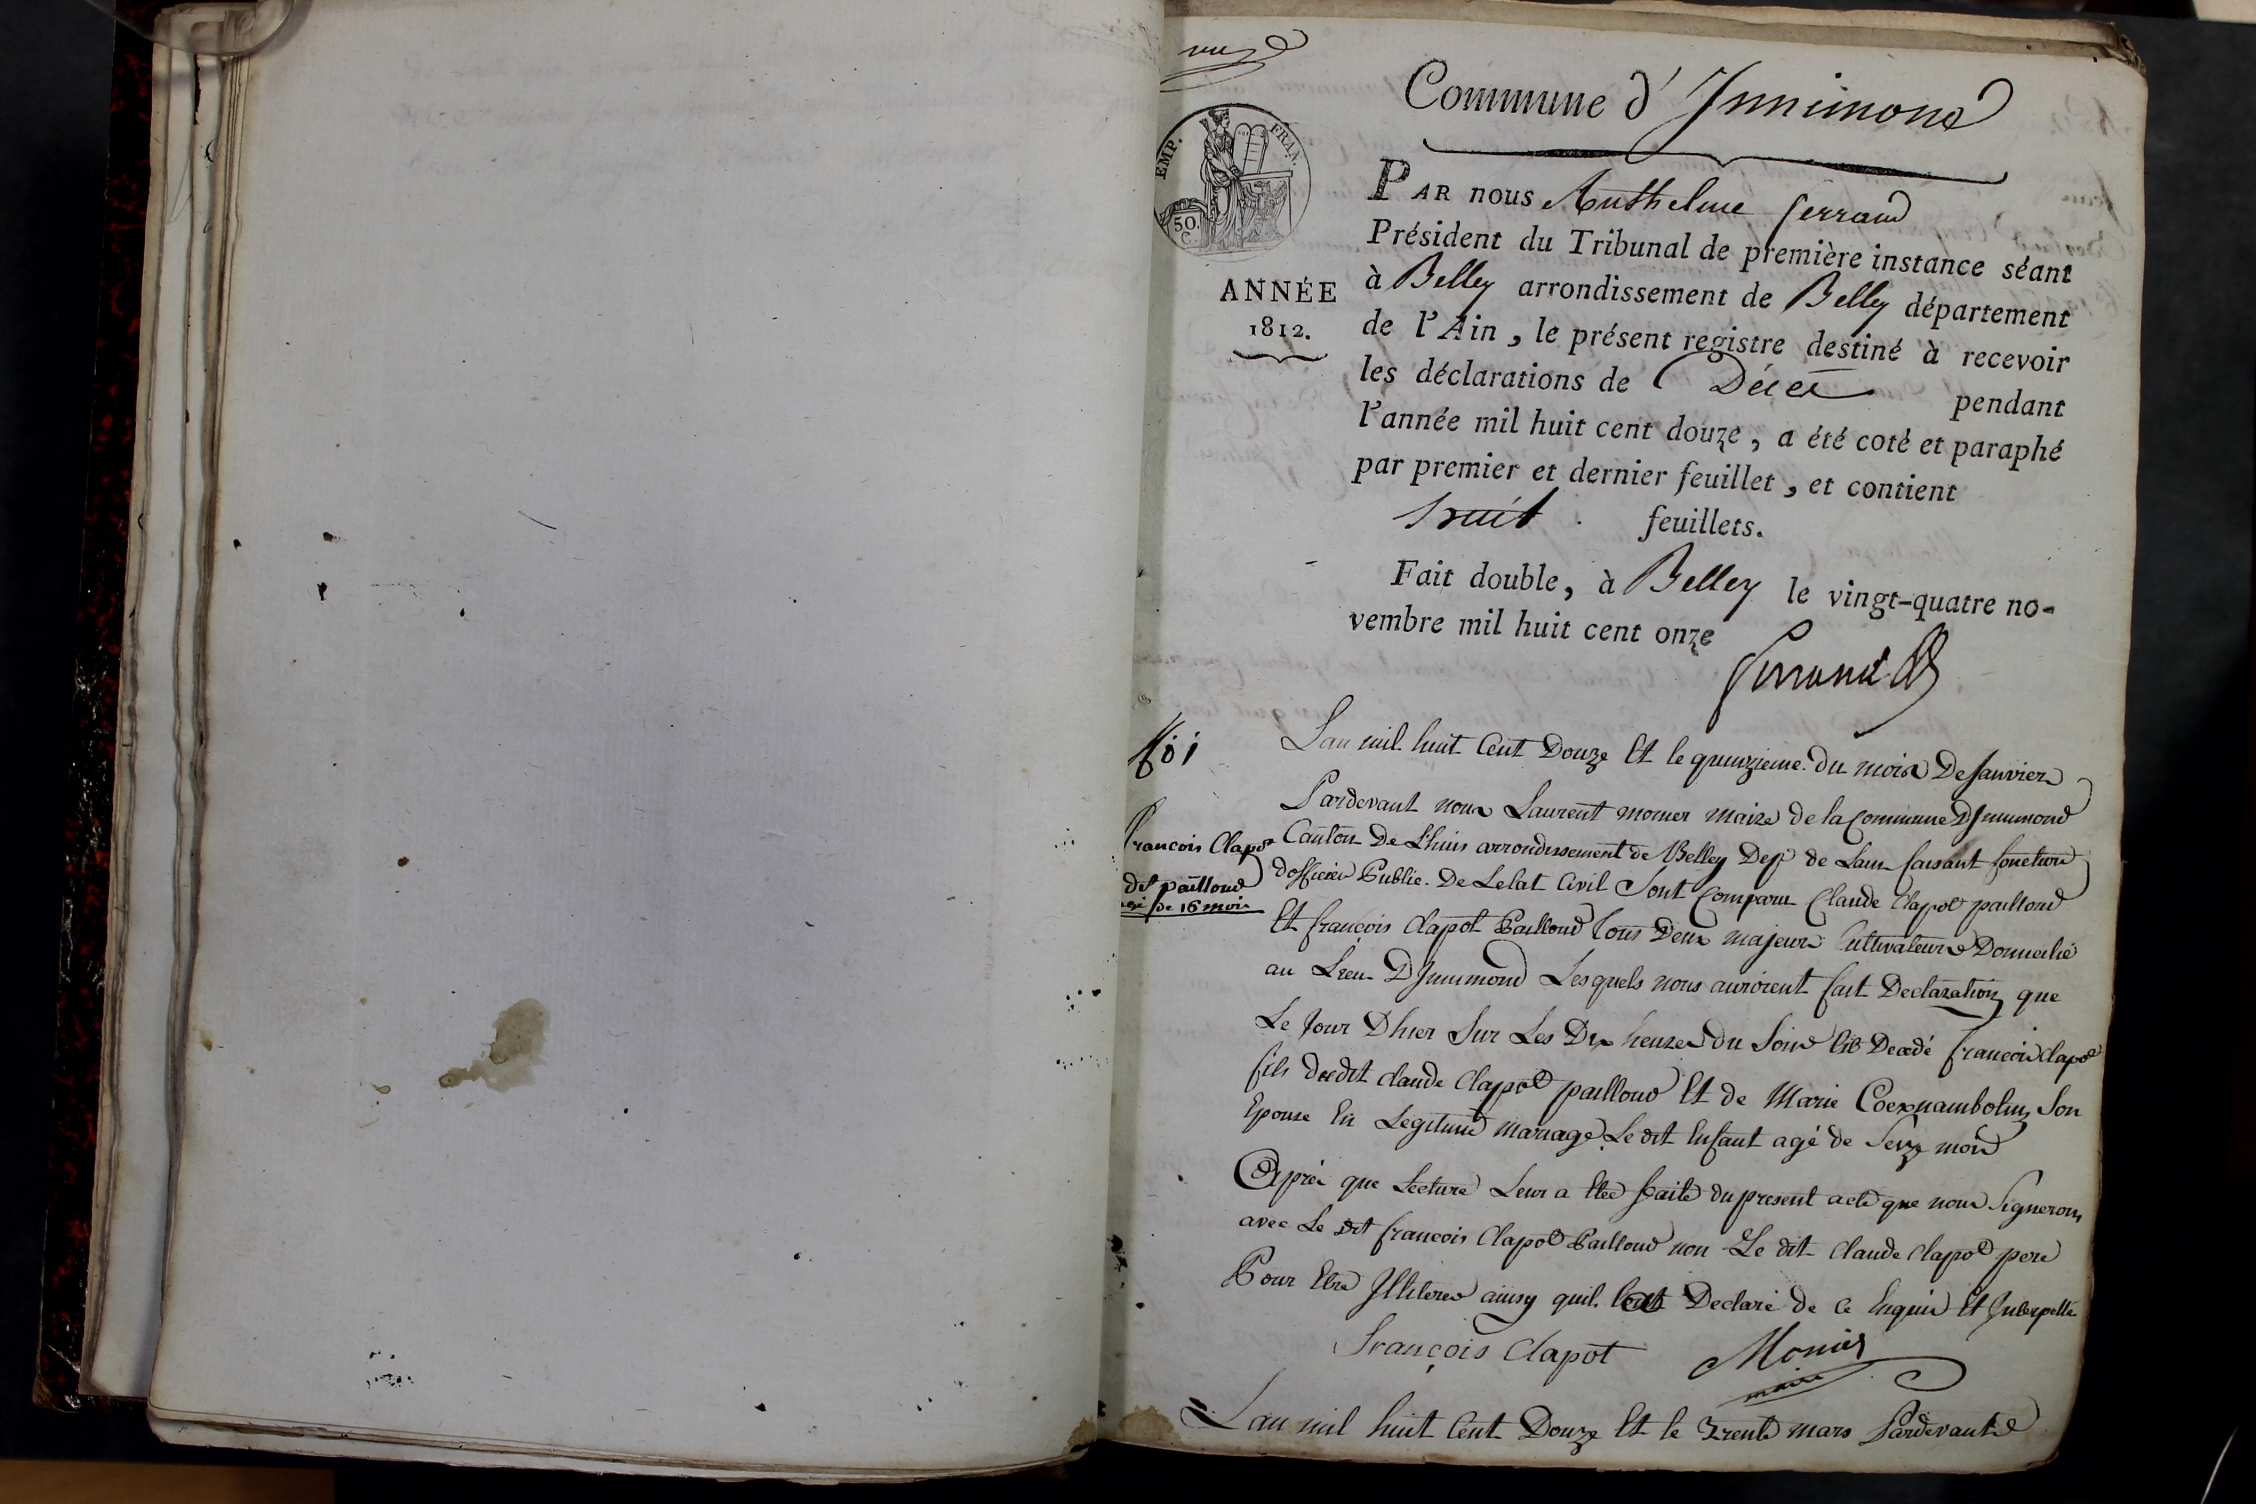 Commune d'Innimond
EMP. FRAN.
50.
C.
ANNÉE
1812.
PAR nous Anthelme ferrand
Président du Tribunal de première instance séant
à Belley arrondissement de Belley département
de l'Ain, le présent registre destiné à recevoir
les déclarations de Décès pendant
l'année mil huit cent douze, a été coté et paraphé
par premier et dernier feuillet, et contient
huit feuillets.
Fait double, à Belley le vingt-quatre no-
vembre mil huit cent onze
ferrand
Lan mil huit Cent Douze Et le quinzieme du mois De Janvier
Pardevant nous Laurent monier maire de la Commune DJnnimond
françois Clapot
dit pailloud
agé de 16 mois
Canton De Lhuis arrondissement de Belley Dep de Lain faisant fonction
dofficier Public De Letat Civil Sont Comparu Claude Clapot pailloud
Et françois Clapot Pailloud tous Deux majeurs Cultivateurs Domicilié
au Lieu DJnnimond Lesquels nous auroient fait Declaration que
Le Jour Dhier Sur Les Dix heures du Soir Est Decedé françois Clapot
fils dudit claude Clapot pailloud Et de Marie Son
Epouse En Legitime mariage Le dit Enfant agé de Seize mois
Après que Lecture Leur a Etée faite du present acte que nous Signerons
avec Le dit francois Clapot Pailloud non Le dit Claude Clapot pere
Pour Etre Jlliteres ainsy quil Declaré de ce Enquis Et Jnterpellé
François Clapot Monier
maire
Lan mil huit Cent Douze Et le Trente mars Pardevant